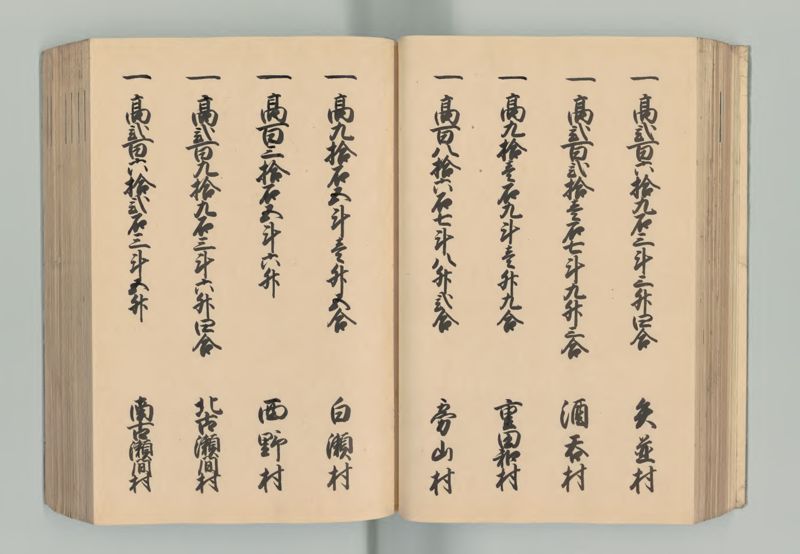 一 高弐百六拾九石三斗三升四合 矢並村
一 高弐百弐拾壱石七斗九升三合 酒呑村
一 高九拾壱石九斗壱升九合 重田和村
一 高百八拾六石七斗八升弐合 穷山村
一 高九拾石五斗壱升五合 白瀬村
一 高百三拾石五斗六升 西野村
一 高弐百九拾九石三斗六升四合 北古瀬間村
一 高弐百六拾弐石三斗五升 南古瀬間村